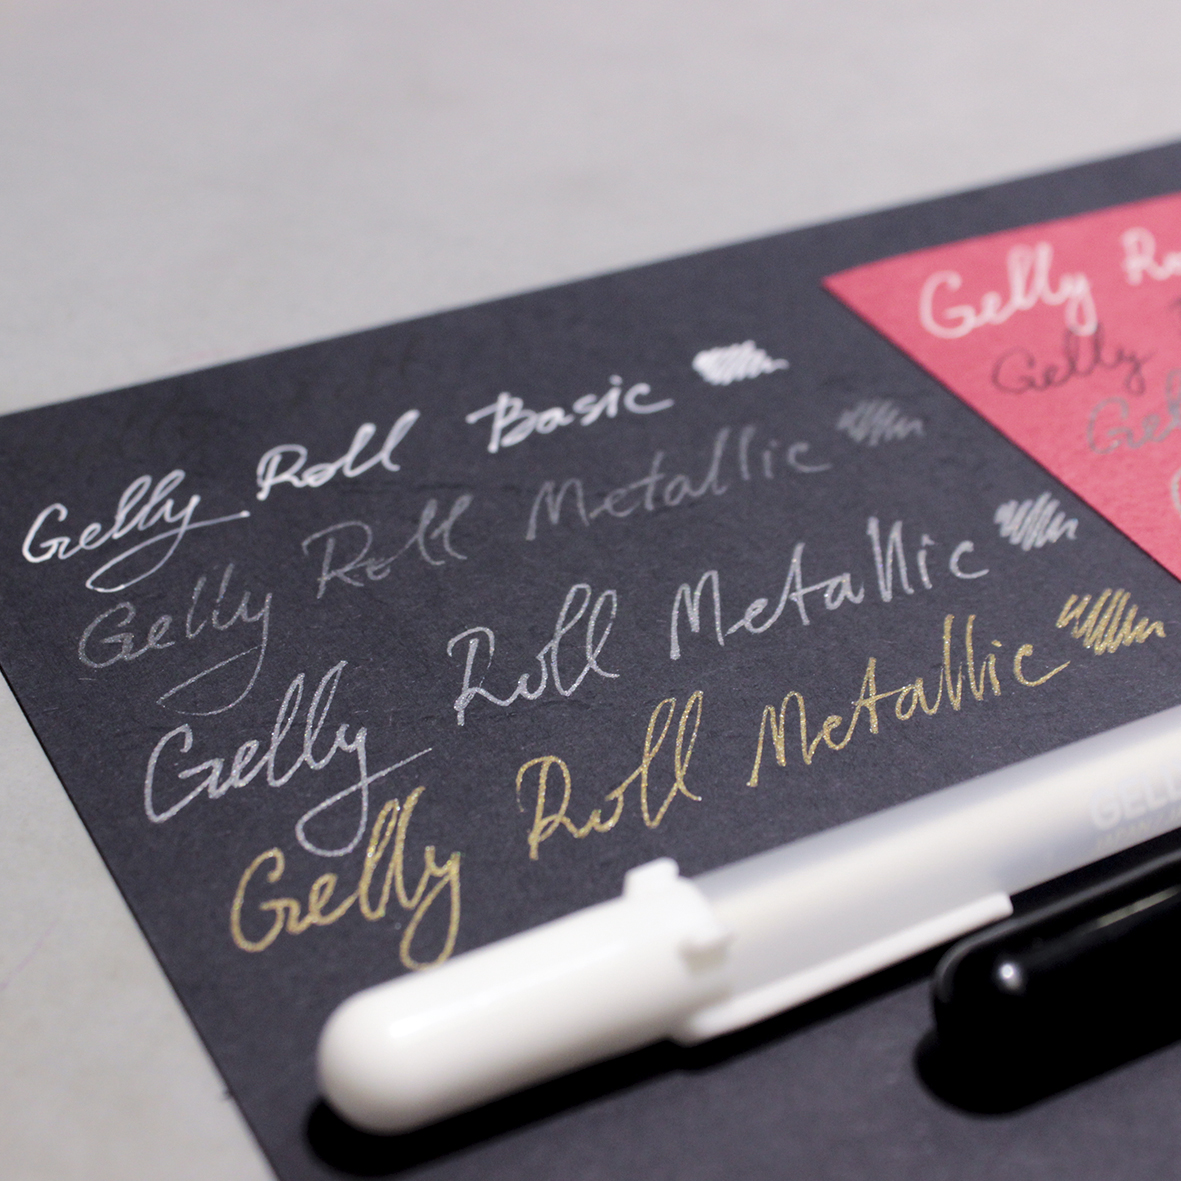 Gelly Roll Basic
Gelly Roll Metallic
Gelly Roll Metallic
Gelly Roll Metallic
Gelly
Gelly
GELL